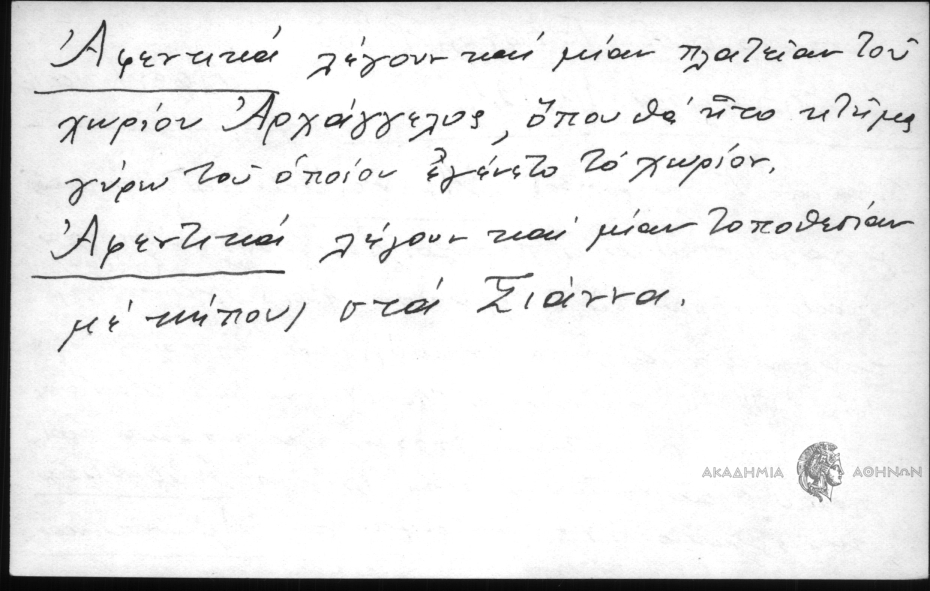 Ἀφεντικά λέγουν καί μίαν πλατεῖαν τοῦ
χωρίου Ἀρχάγγελος, ὅπου θά ἦτο κτῆμα
γύρω τοῦ ὁποίου ἐγένετο τό χωρίον.
Ἀφεντικά λέγουν καί μίαν τοποθεσίαν
μέ κήπους στά Σιάννα.
ΑΚΑΔΗΜΙΑ ΑΘΗΝΩΝ